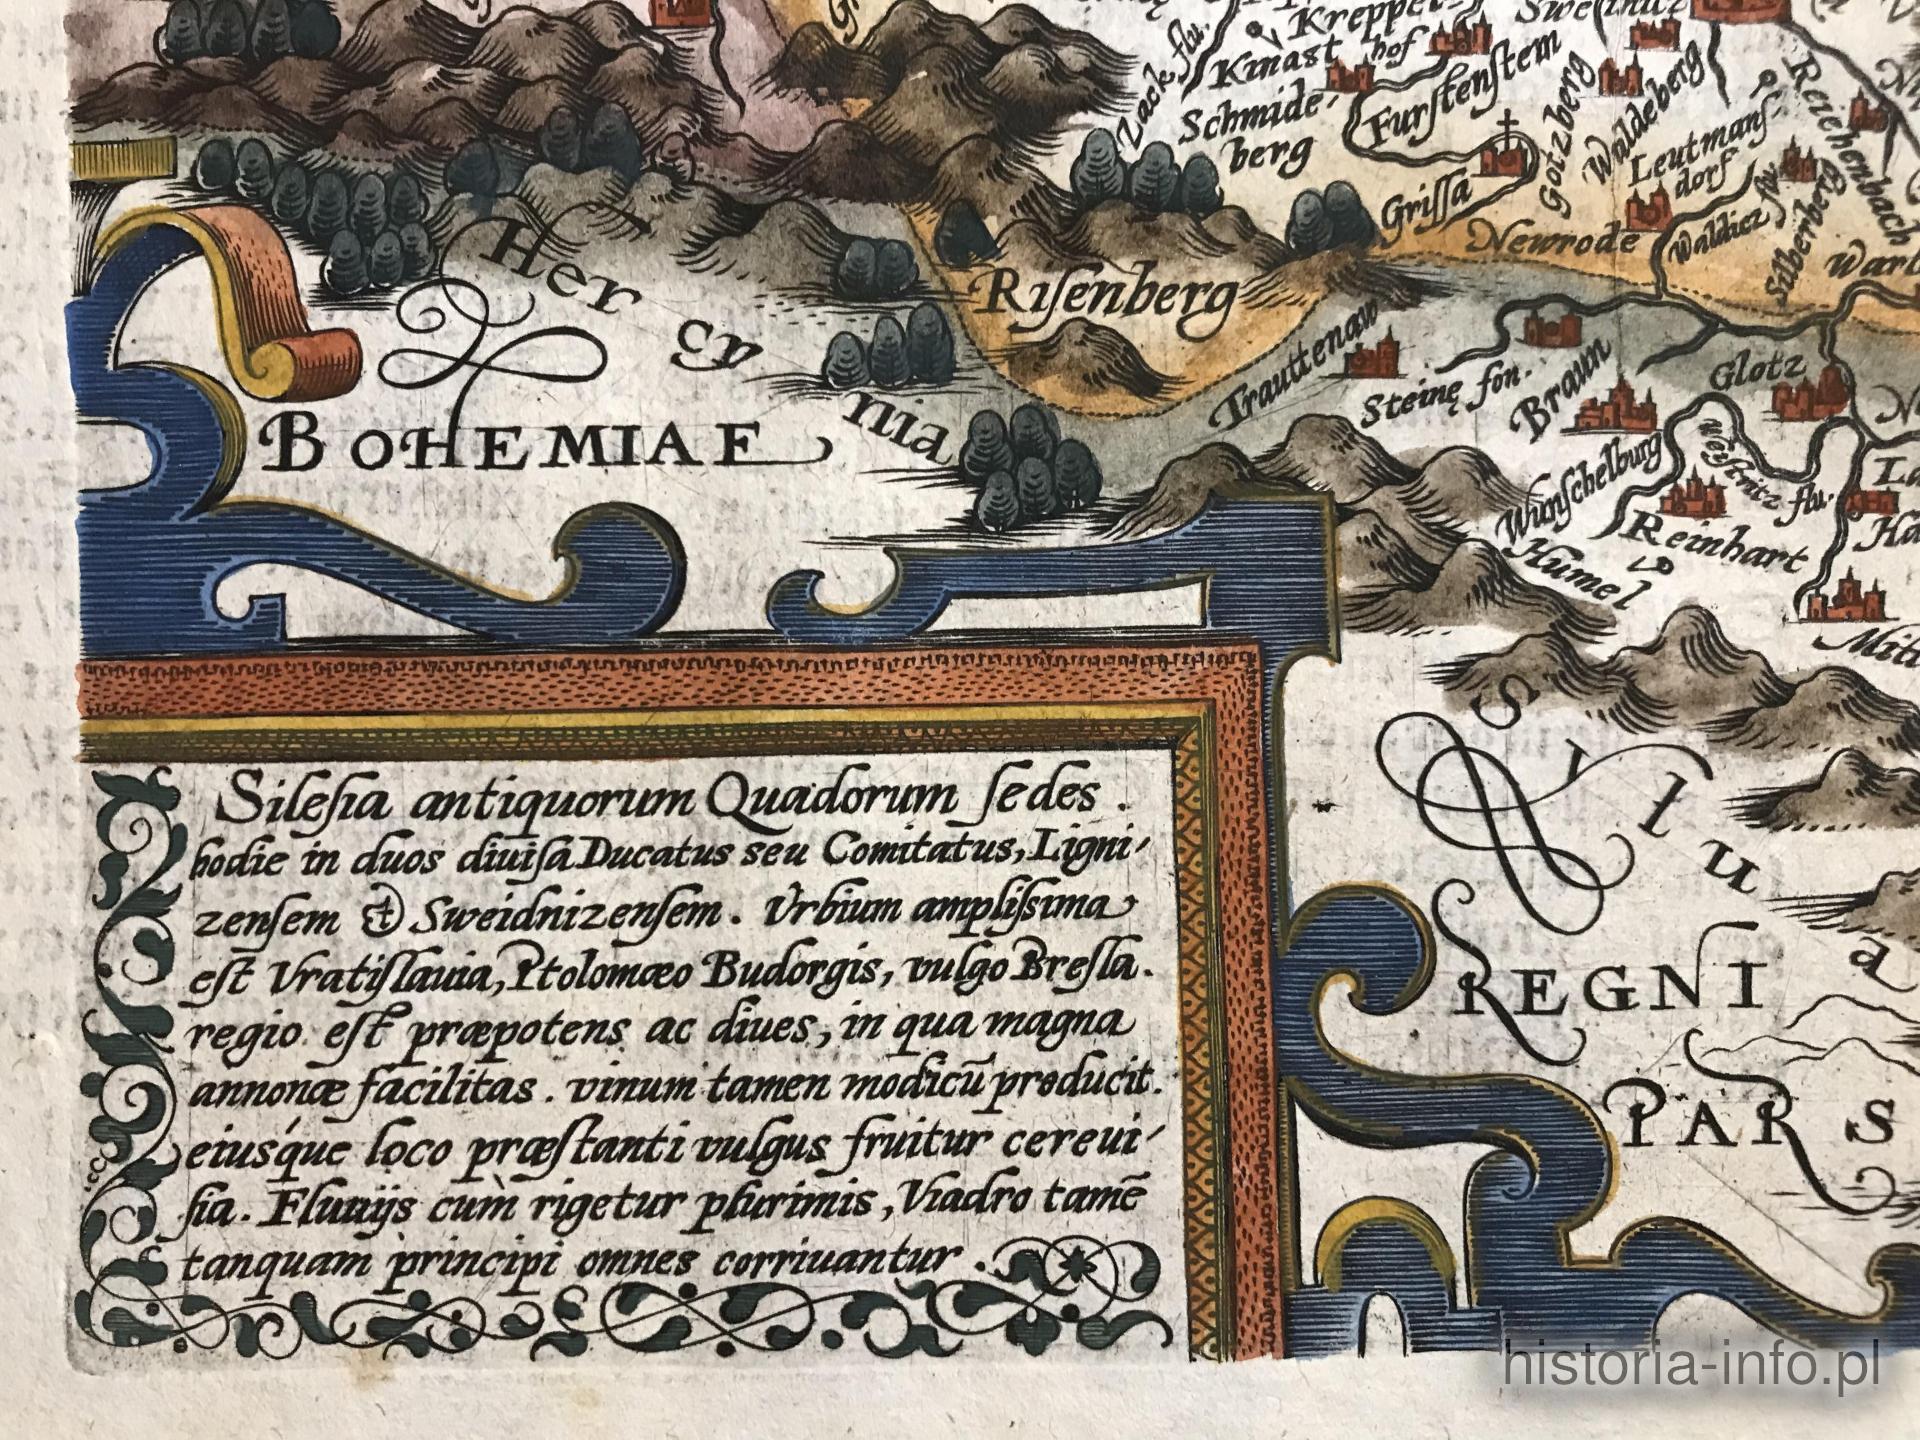 Kreppel
Zack flu.
Kinast
hof
Schmide-
berg
Furſtenſtein
Gotzberg
Waldeberg
Leutmanſ-
dorf
Reichenbach
Griſſa
Newrode
Waldicz flu.
Silberberg
Riſenberg
Her cy nia
BOHEMIAE
Trauttenaw
Steinę fon.
Braun
Glotz
Wunſchelburg
Neſtritz flu.
Reinhart
Humel
Silua
REGNI
PARS
Sileſia antiquorum Quadorum ſedes.
hodie in duos diuiſa Ducatus seu Comitatus, Ligni-
zenſem & Sweidnizenſem. Vrbium ampliſsima
eſt Vratiſlauia, Ptolomæo Budorgis, vulgo Breſla.
regio eſt præpotens ac diues, in qua magna
annonæ facilitas. vinum tamen modicū producit.
eiusq́ue loco præſtanti vulgus fruitur cereui-
ſia. Fluuijs cum̀ rigetur plurimis, Viadro tamē
tanquam principi omnes corriuantur.
historia-info.pl